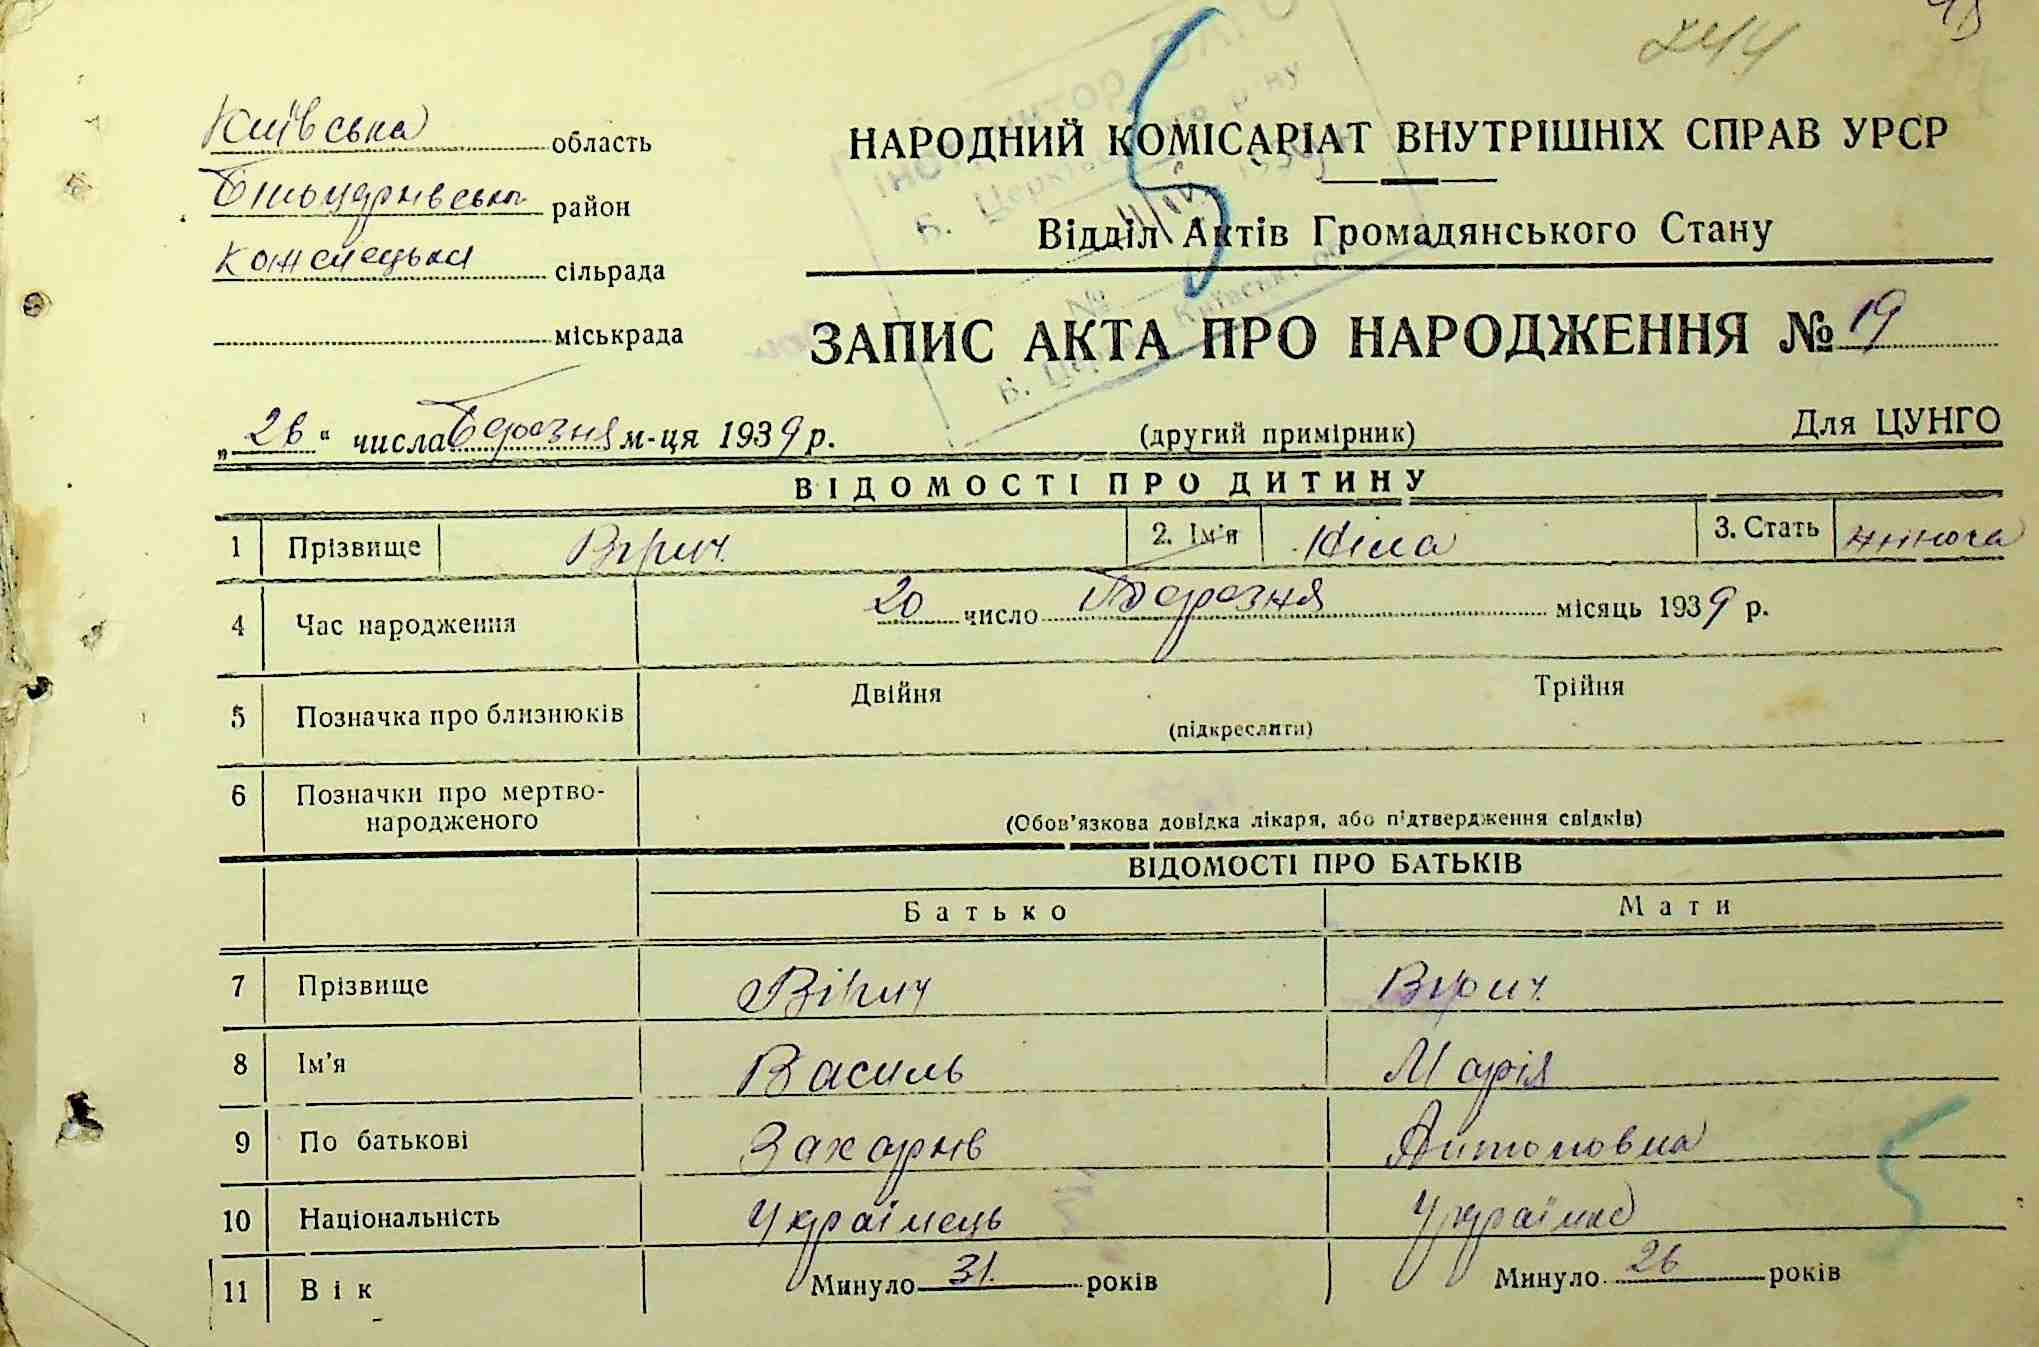 244
Київська область
Білоцерківська район
сільрада
міськрада
НАРОДНИЙ КОМІСАРІАТ ВНУТРІШНІХ СПРАВ УРСР
Відділ Актів Громадянського Стану
ЗАПИС АКТА ПРО НАРОДЖЕННЯ № 19
„26“ числа Березня м-ця 1939 р.
(другий примірник)
Для ЦУНГО
ВІДОМОСТІ ПРО ДИТИНУ
1 Прізвище Вірич 2. Ім'я Ніла 3. Стать жіноча
4 Час народження 20 число Березня місяць 1939 р.
5 Позначка про близнюків Двійня Трійня
(підкреслити)
6 Позначки про мертво-
народженого (Обов'язкова довідка лікаря, або підтвердження свідків)
ВІДОМОСТІ ПРО БАТЬКІВ
Батько Мати
7 Прізвище Вірич Вірич
8 Ім'я Василь Марія
9 По батькові Захарків Антоновна
10 Національність Українець Українка
11 Вік Минуло 31 років Минуло 26 років